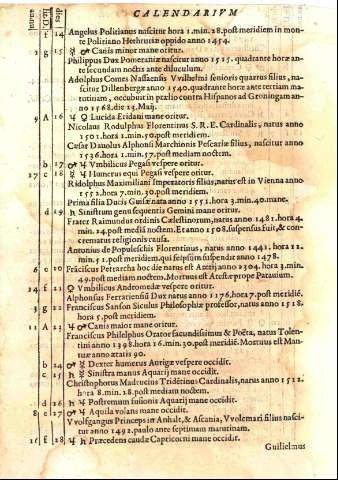 CALENDARIVM
f 14 Angelus Politianus nascitur hora 1. min. 28. post meridiem in mon-
te Politiano Hethruriæ oppido anno 1454.
2 g 15 ♂ Canis minor mane oritur.
Philippus Dux Pomeraniæ nascitur anno 1515. quadrante horæ an-
te secundam noctis ante diluculum.
Adolphus Comes Nassaensis Vvilhelmi senioris quartus filius, na-
scitur Dillenbergæ anno 1540. quadrante horæ ante tertiam ma-
tutinam, occubuit in prælio contra Hispanos ad Groningam an-
no 1568. die 25. Maij.
9 A 16 ♀ Lucida Eridani mane oritur.
Nicolaus Rodulphus Florentinus S. R. E. Cardinalis, natus anno
1501. hora 1. min. 50. post meridiem.
Cæsar Daualos Alphonsi Marchionis Pescariæ filius, nascitur anno
1536. hora 1. min. 57. post mediam noctem.
b 17 Vmbilicus Pegasi vespere oritur.
17 c 18 Humerus equi Pegasi vespere oritur.
Ridolphus Maximiliani Imperatoris filius, natus est in Vienna anno
1552. hora 7. min. 30. post meridiem.
Prima filia Ducis Guisæ nata anno 1551. hora 3. min. 40. mane.
d 19 ♄ Sinistrum genu sequentis Gemini mane oritur.
Frater Raimundus ordinis Cælestinorum, natus anno 1481. hora 4.
min. 24. post mediā noctem. Et anno 1508. suspensus fuit, & con-
crematus religionis causa.
Antonius de Populeschis Florentinus, natus anno 1441. hora 12.
min. 51. post meridiem. qui seipsum suspendit anno 1478.
6 e 20 Frāciscus Petrarcha hoc die natus est Aretij anno 1304. hora 3. min.
49. post mediam noctem. Mortuus est Arcuæ prope Patauium.
14 f 21 ♀ Vmbilicus Andromedæ vespere oritur.
Alphonsus Ferrariensis Dux natus anno 1476. hora 7. post meridiē.
3 g 22 Franciscus Sanson Siculus Philosophiæ professor, natus anno 1518.
hora 5. post meridiem.
11 A 23 Canis maior mane oritur.
Franciscus Philelphus Orator facundissimus & Poëta, natus Tolen-
tini anno 1398. hora 16. min. 30. post meridiē. Mortuus est Man-
tuæ anno ætatis 90.
b 24 Dexter humerus Aurigæ vespere occidit.
c 25 Sinistra manus Aquarij mane occidit.
Christophorus Madrucius Tridētinus Cardinalis, natus anno 1512.
hora 8. min. 28. post mediam noctem.
d 26 Postremum fusionis Aquarij mane occidit.
8 e 27 Aquila volans mane occidit.
Vvolfgangus Princeps in Anhalt, & Ascania, Vvolemari filius nasci-
tur anno 1492. paulo ante septimam matutinam.
16 f 28 Præcedens caudæ Capricorni mane occidit.
Guilielmus